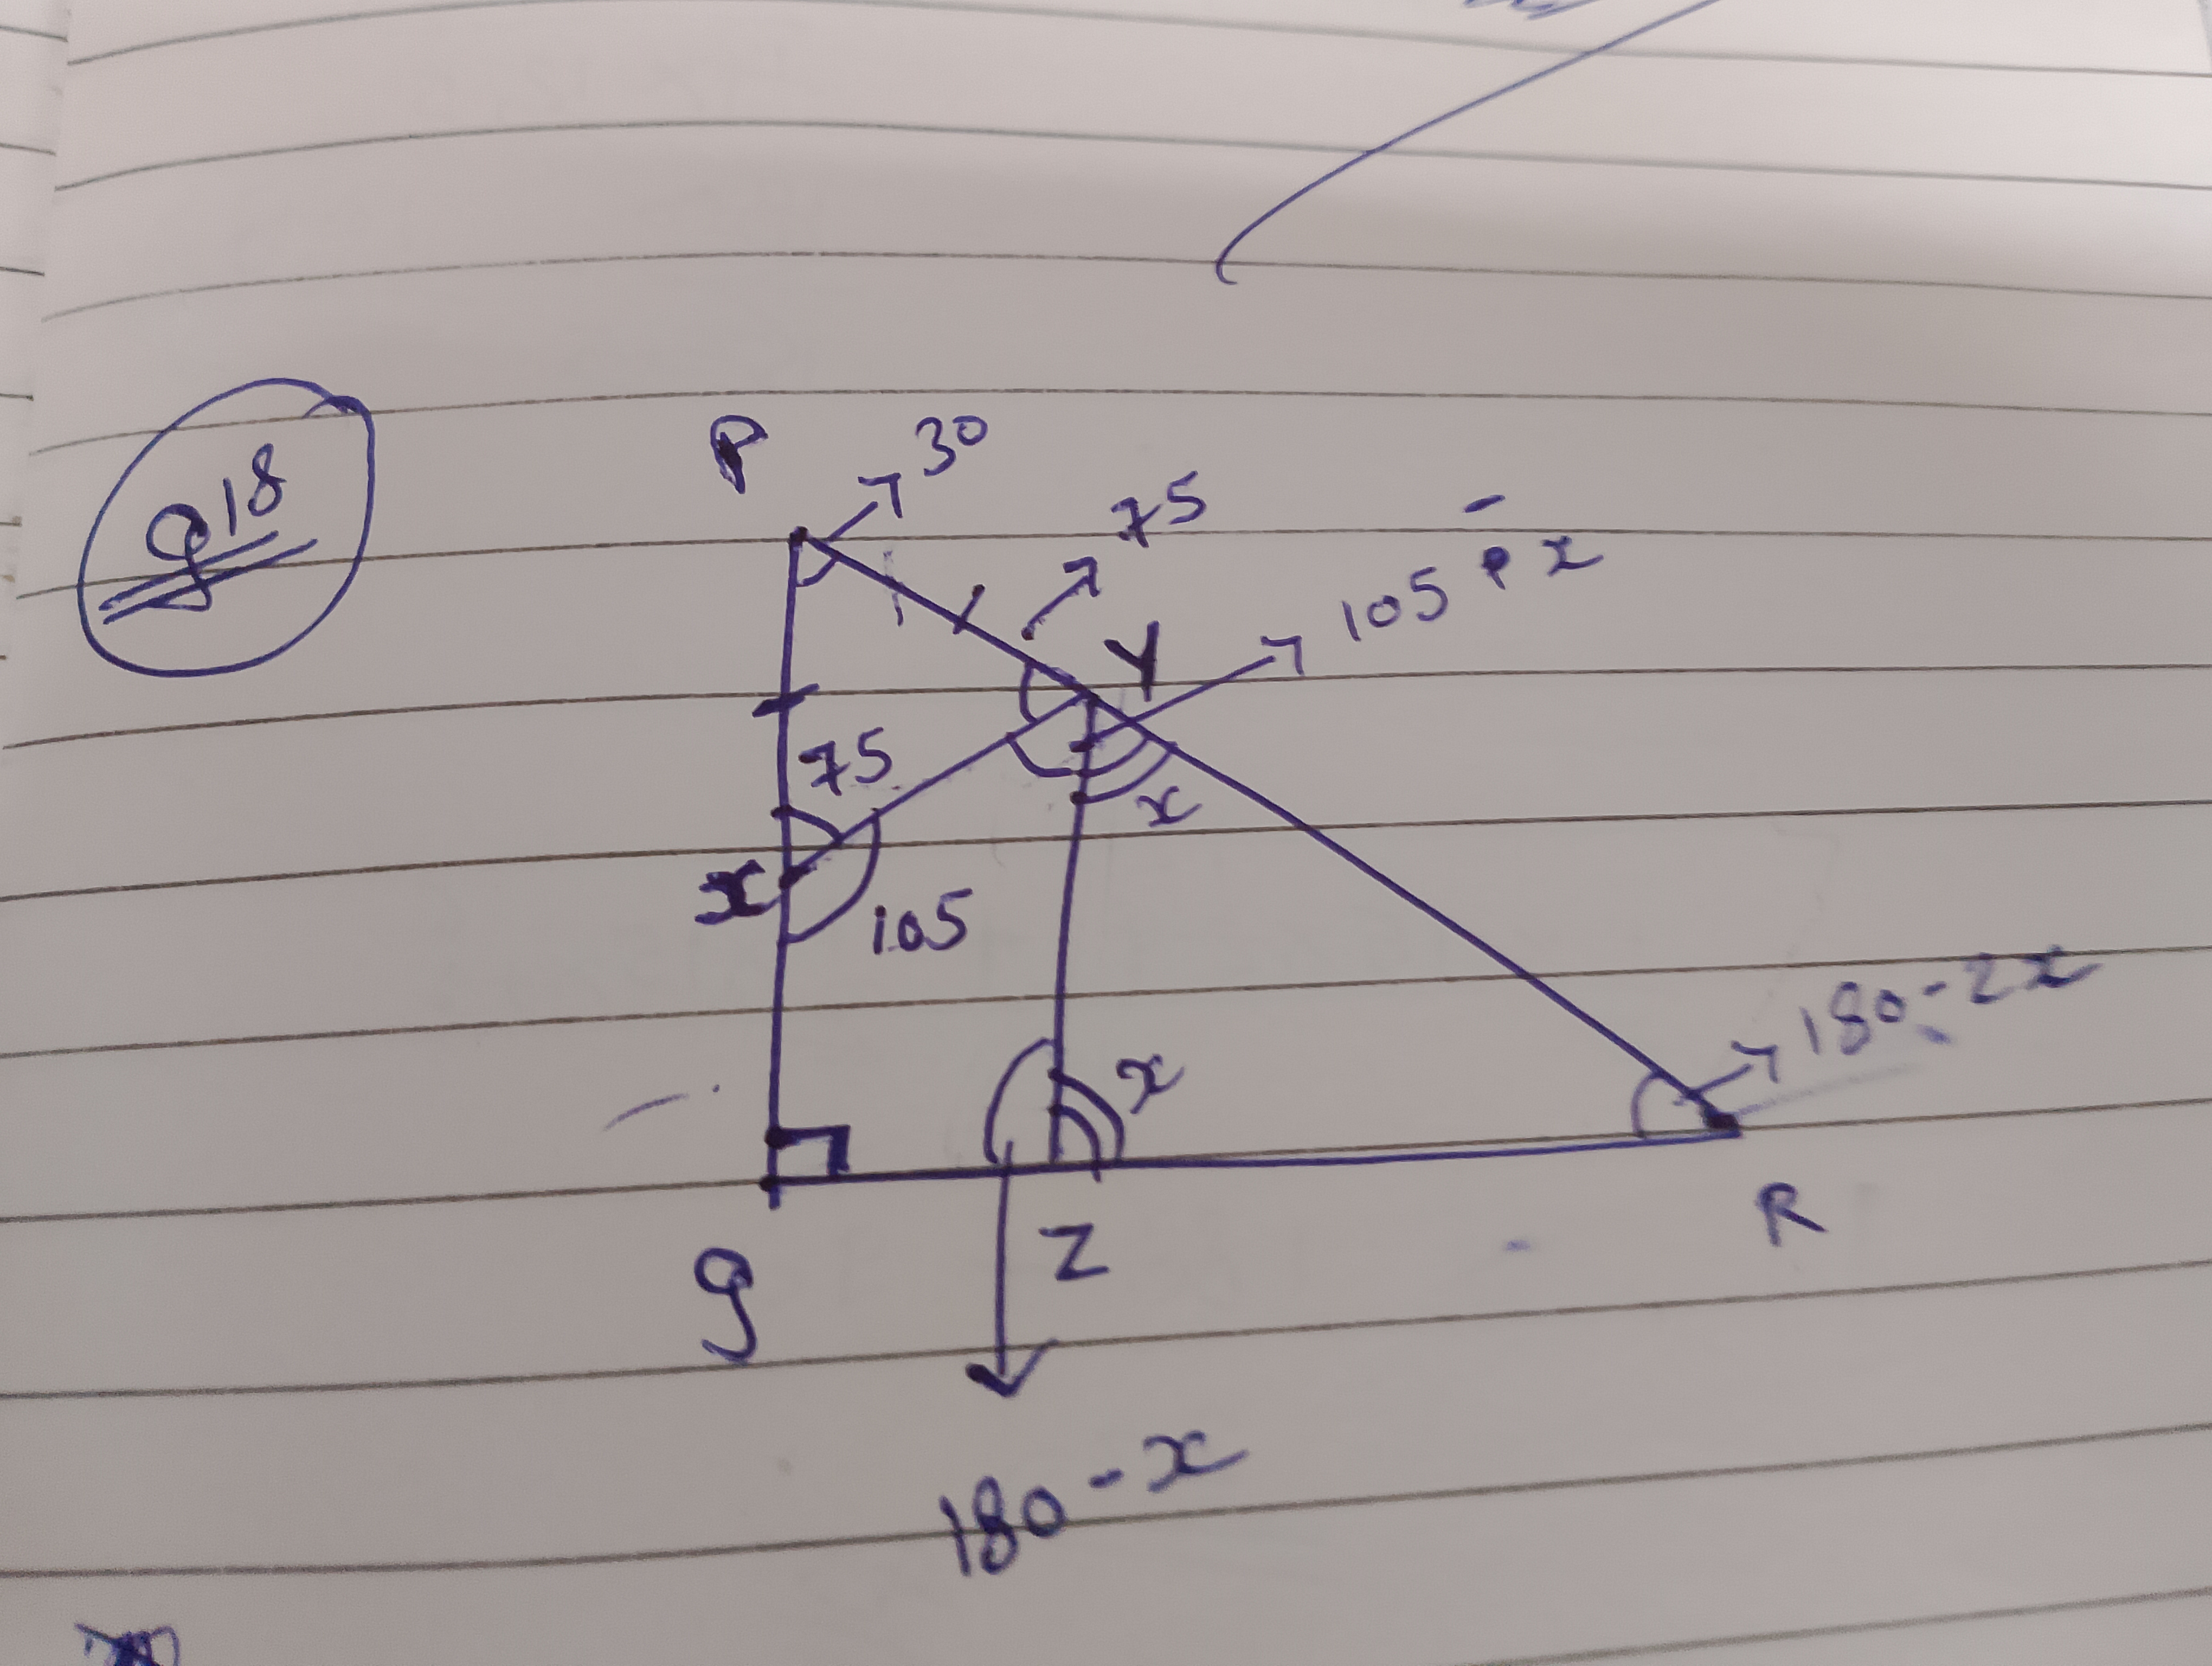 Q18
P
30
75
Y
105 - x
75
x
x
105
x
180-2x
Z
R
Q
180-x